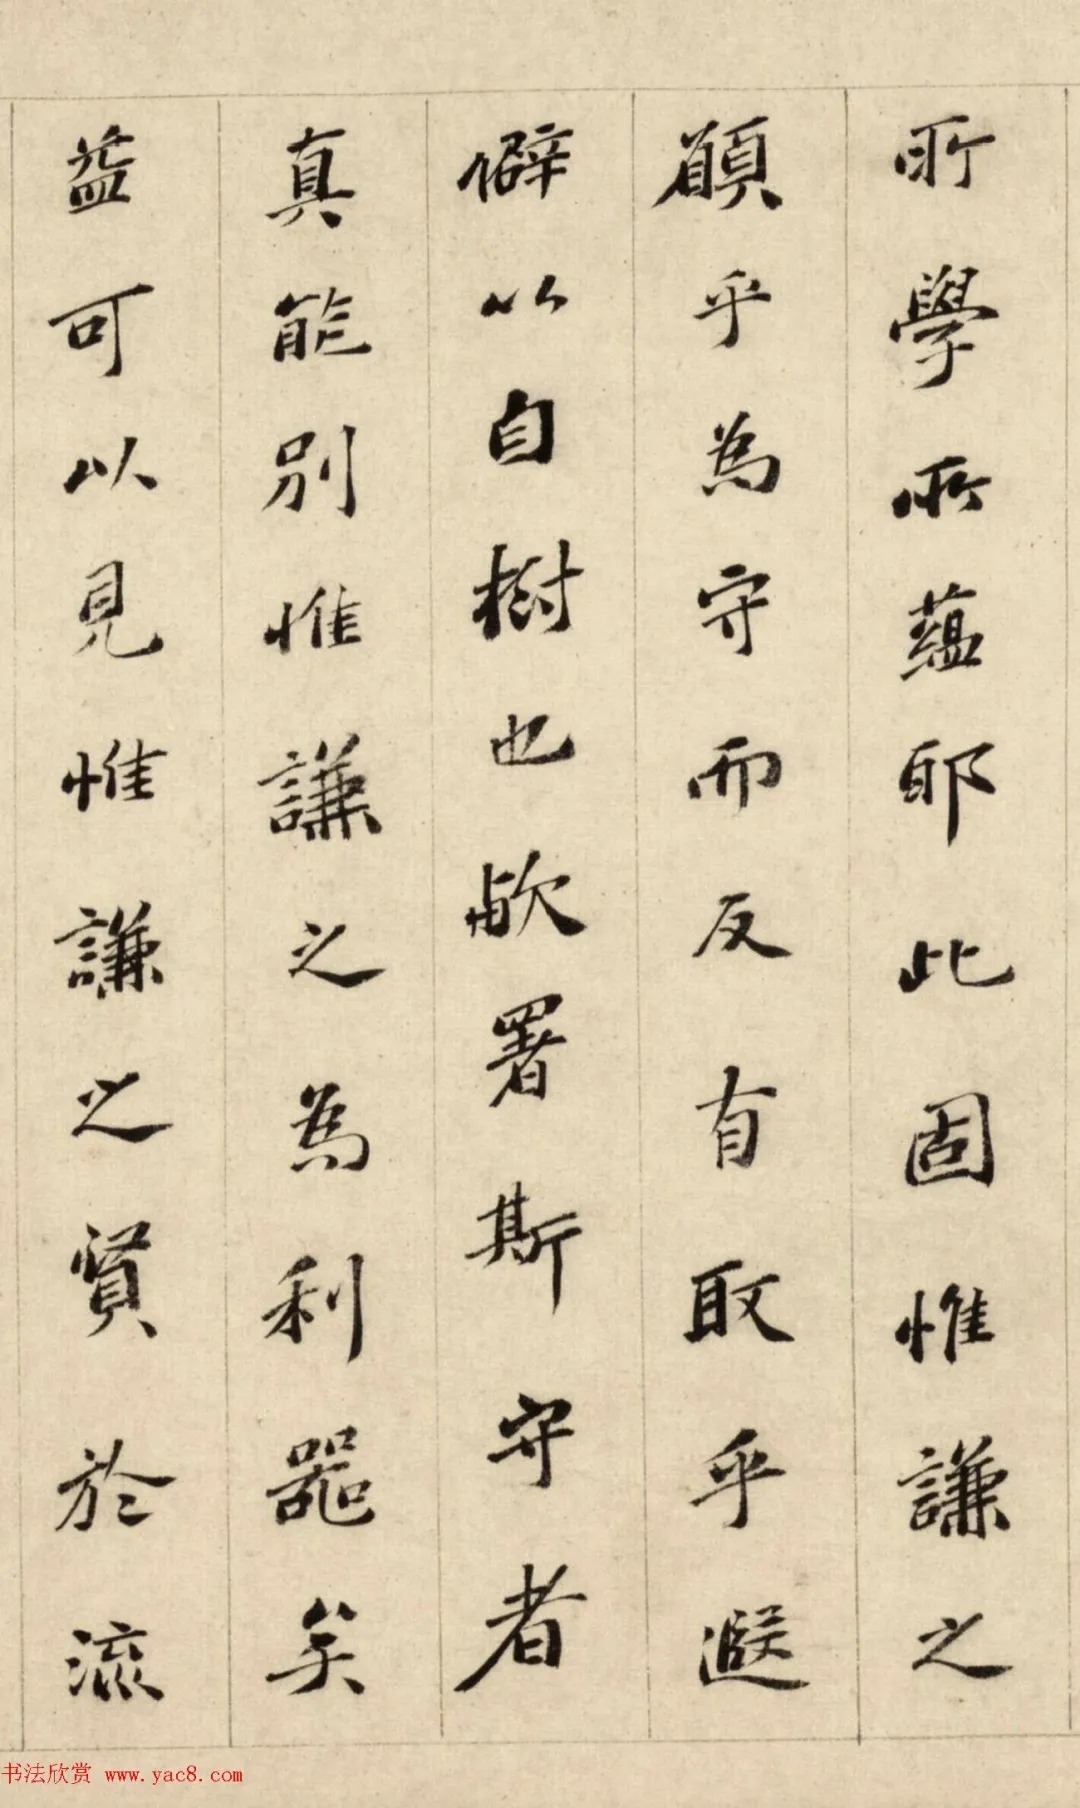 所學所蘊耶此固惟謙之
顧乎為守而反有取乎遐
僻以自樹也歟署斯守者
真能別惟謙之為利器矣
益可以見惟謙之賢於流
书法欣赏 www.yac8.com